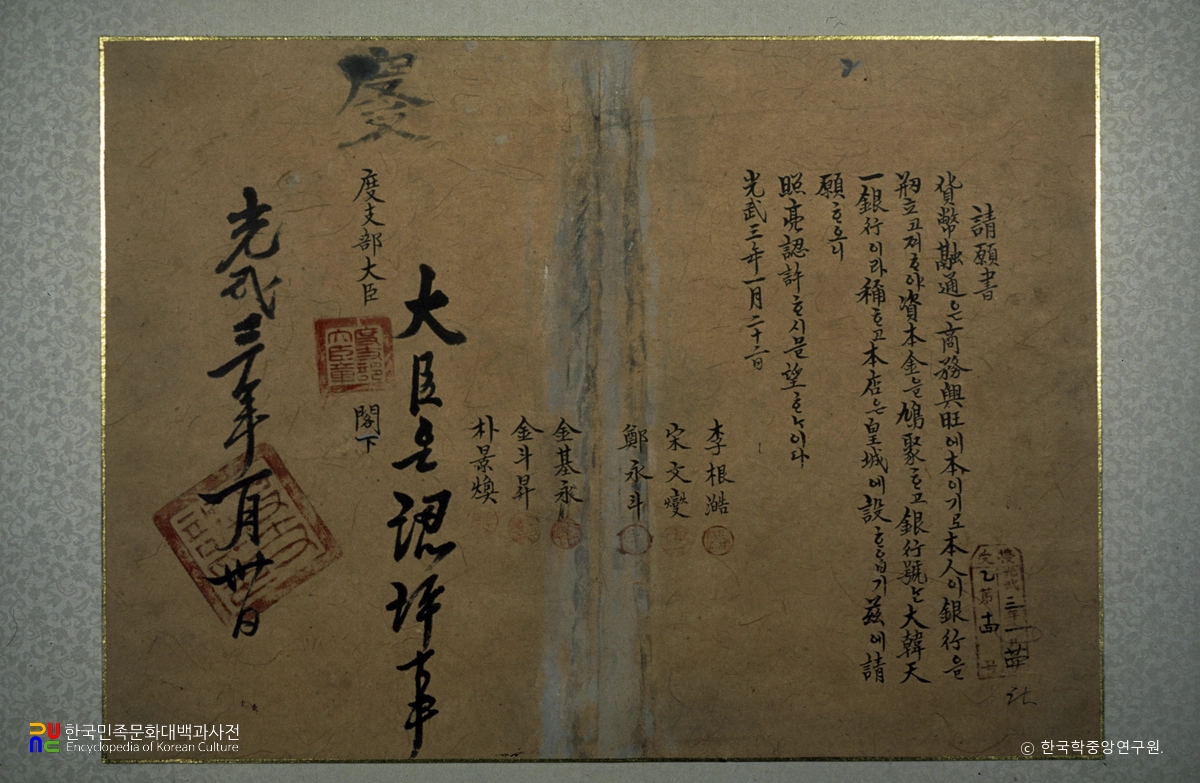 請願書
貨幣融通은商務興旺에本이기로本人이銀行을
刱立고져ᄒᆞ야資本金을鳩聚ᄒᆞ고銀行號난大韓天
一銀行이라稱ᄒᆞ고本店은皇城에設ᄒᆞ옵기玆에請
願ᄒᆞ오니
照亮認許ᄒᆞ시믈望ᄒᆞᄂᆞ이다
光武三年一月二十六日
李根澔
宋文燮
鄭永斗
金基永
金斗昇
朴景煥
大臣은認許事
度支部大臣
閣下
光武三年一月卅日
한국민족문화대백과사전
Encyclopedia of Korean Culture
© 한국학중앙연구원.